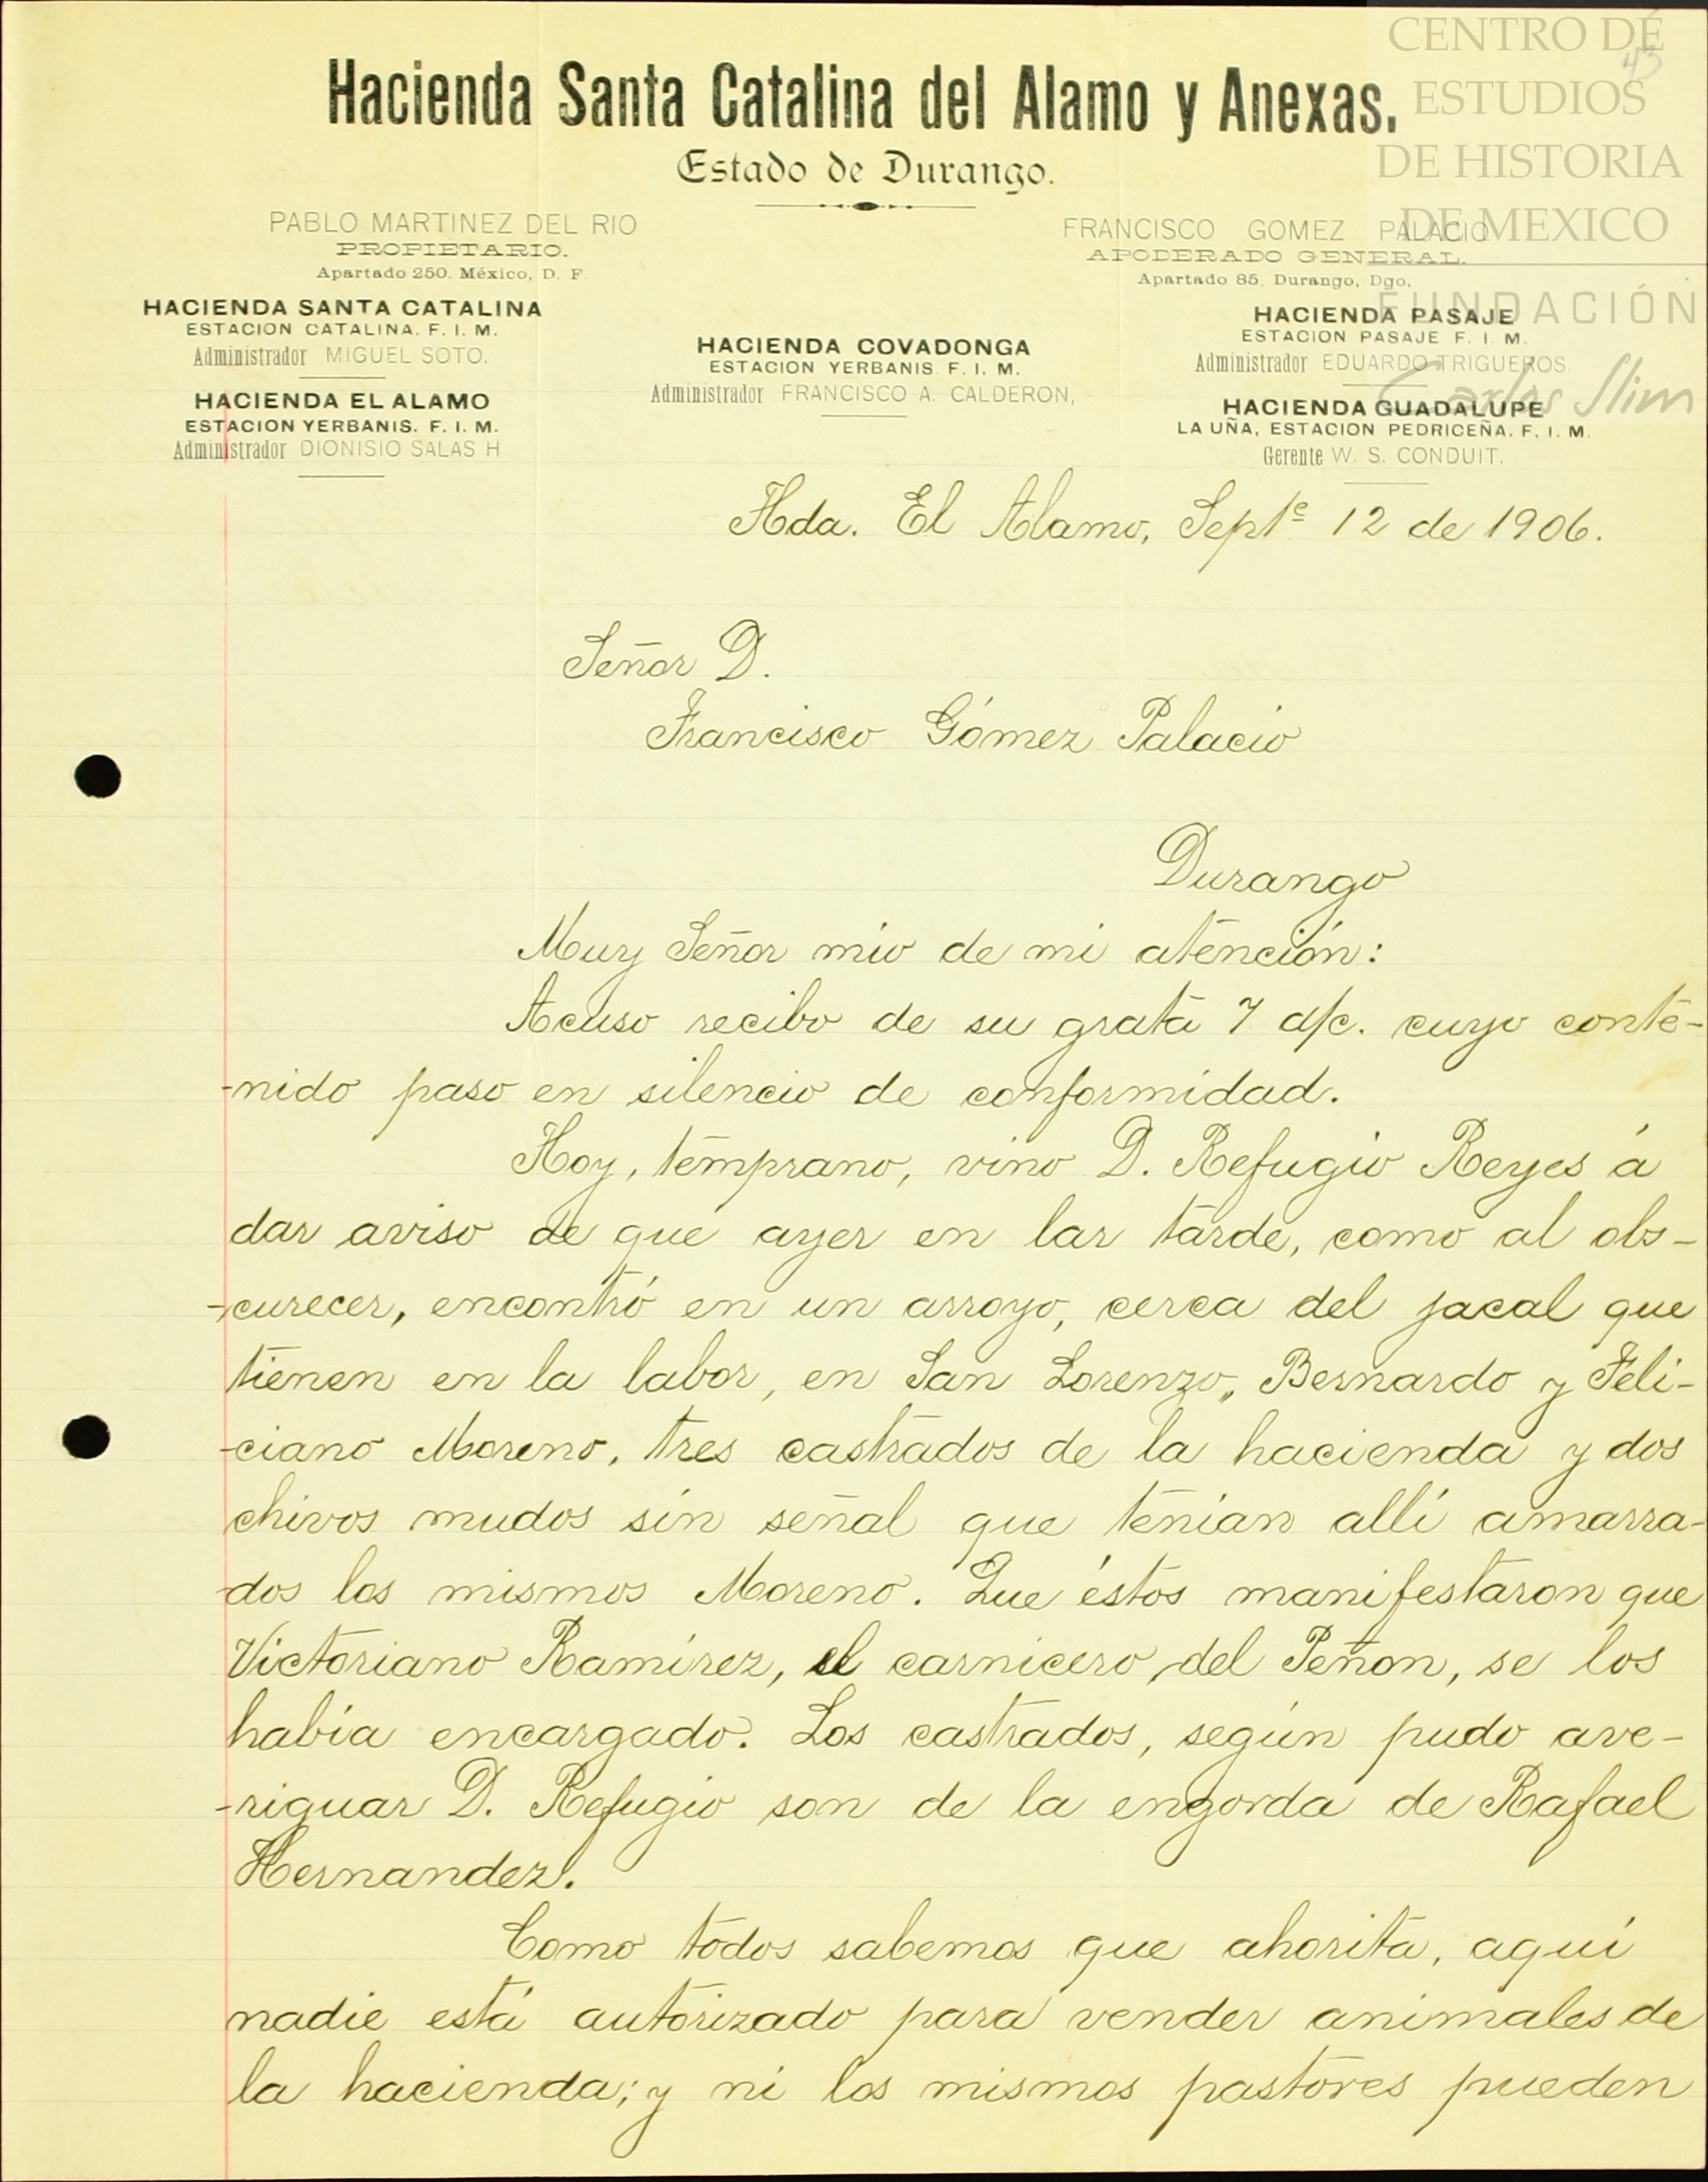 CENTRO DE
ESTUDIOS
DE HISTORIA
DE MEXICO
FUNDACIÓN
Carlos Slim
43
Hacienda Santa Catalina del Alamo y Anexas.
Estado de Durango.
PABLO MARTINEZ DEL RIO
PROPIETARIO.
Apartado 250. México, D. F.
FRANCISCO GOMEZ PALACIO
APODERADO GENERAL.
Apartado 85, Durango, Dgo.
HACIENDA SANTA CATALINA
ESTACION CATALINA. F. I. M.
Administrador MIGUEL SOTO.
HACIENDA EL ALAMO
ESTACION YERBANIS. F. I. M.
Administrador DIONISIO SALAS H
HACIENDA COVADONGA
ESTACION YERBANIS. F. I. M.
Administrador FRANCISCO A. CALDERON,
HACIENDA PASAJE
ESTACION PASAJE F. I. M.
Administrador EDUARDO TRIGUEROS.
HACIENDA GUADALUPE
LA UÑA, ESTACION PEDRICEÑA. F. I. M.
Gerente W. S. CONDUIT.
Hda. El Alamo, Septe 12 de 1906.
Señor D.
Francisco Gómez Palacio
Durango
Muy Señor mio de mi atención:
Acuso recibo de su grata 7 d/c. cuyo conte-
-nido paso en silencio de conformidad.
Hoy, temprano, vino D. Refugio Reyes á
dar aviso de que ayer en lar tarde, como al obs-
-curecer, encontró en un arroyo, cerca del jacal que
tienen en la labor, en San Lorenzo,, Bernardo y Feli-
-ciano Moreno, tres castrados de la hacienda y dos
chivos mudos sin señal que tenían allí amarra-
-dos los mismos Moreno. Que éstos manifestaron que
Victoriano Ramírez, el carnicero del Peñon, se los
había encargado. Los castrados, según pudo ave-
-riguar D. Refugio son de la engorda de Rafael
Hernandez.
Como todos sabemos que ahorita, aquí
nadie está autorizado para vender animales de
la hacienda; y ni los mismos pastores pueden